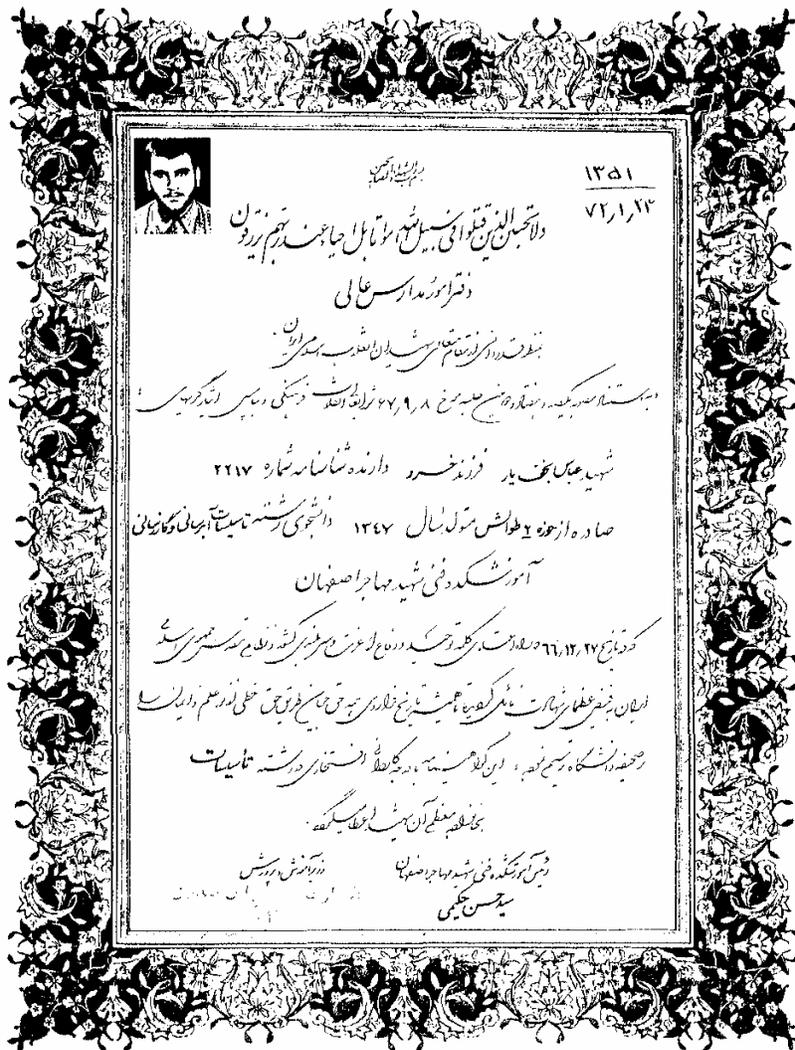 بسم رب الشهداء و الصدیقین
۱۳۵۱
۷۲٫۱٫۲۳
ولا تحسبن الذین قتلوا فی سبیل الله امواتا بل احیاء عند ربهم یرزقون
دفتر امور مدارس عالی
بمنظور قدردانی از مقام متعالی شهیدان انقلاب اسلامی ایران
و به استناد مصوبه یکصد و هفتاد و جلسه مورخ ۶۷٫۹٫۸ شورایعالی انقلاب فرهنگی و بپاس ایثارگریهای
شهید عباس بخت یار فرزند خسرو دارنده شناسنامه شماره ۲۲۱۷
صادره از حوزه ۲ طوالش متولد بسال ۱۳۴۷ دانشجوی رشته تاسیسات آبرسانی و گازرسانی
آموزشکده فنی شهید مهاجر اصفهان
که در تاریخ ۶۶٫۱۲٫۲۷ در راه اعتلای کلمه توحید و دفاع از عزت و سربلندی کشور و نظام مقدس جمهوری اسلامی
ایران به فیض عظمای شهادت نائل گردید تا همیشه تاریخ فراروی همه حق جویان طریق حق خطی از نور علم و ایمان را
بر صحیفه دانشگاه ترسیم نموده، این گواهینامه با درجه افتخاری در رشته تاسیسات
بخانواده معظم آن شهید اعطا میگردد.
رئیس آموزشکده فنی شهید مهاجر اصفهان
سید حسن حکیمی
وزیر آموزش و پرورش